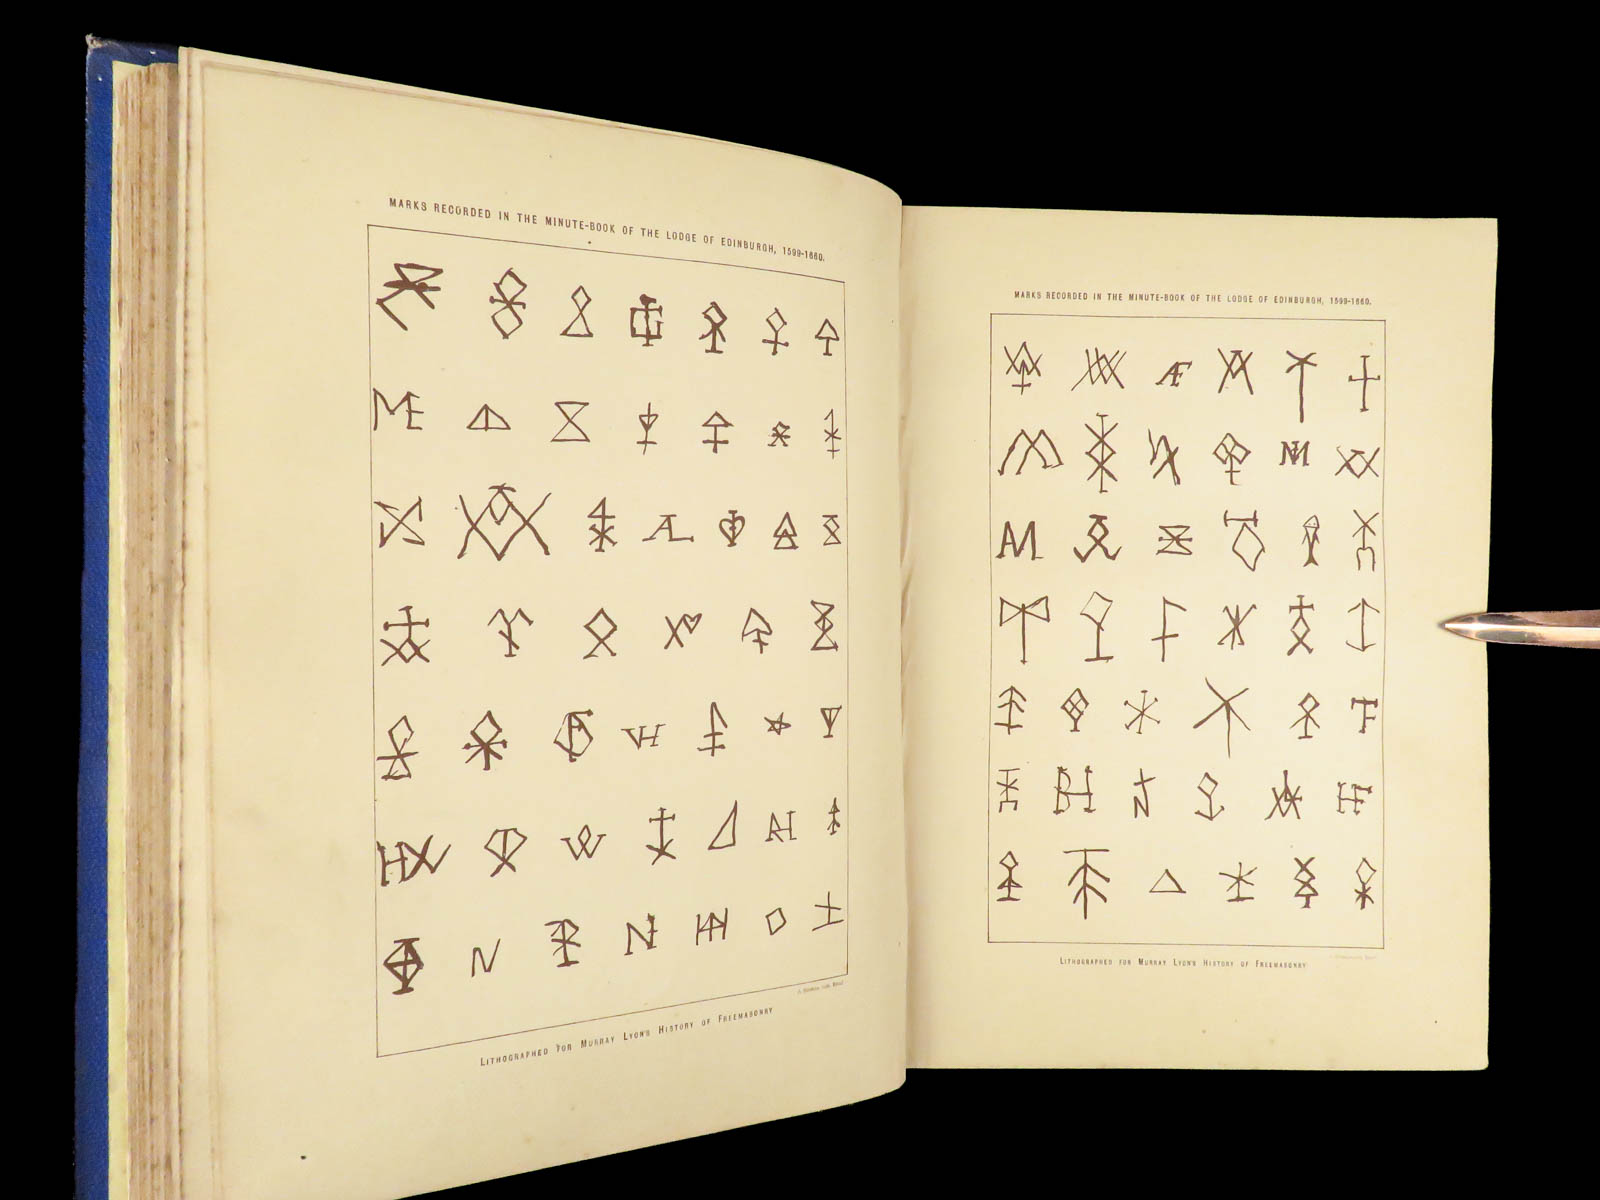 MARKS RECORDED IN THE MINUTE-BOOK OF THE LODGE OF EDINBURGH, 1599-1660.
LITHOGRAPHED FOR MURRAY LYON'S HISTORY OF FREEMASONRY
MARKS RECORDED IN THE MINUTE-BOOK OF THE LODGE OF EDINBURGH, 1599-1660.
LITHOGRAPHED FOR MURRAY LYON'S HISTORY OF FREEMASONRY